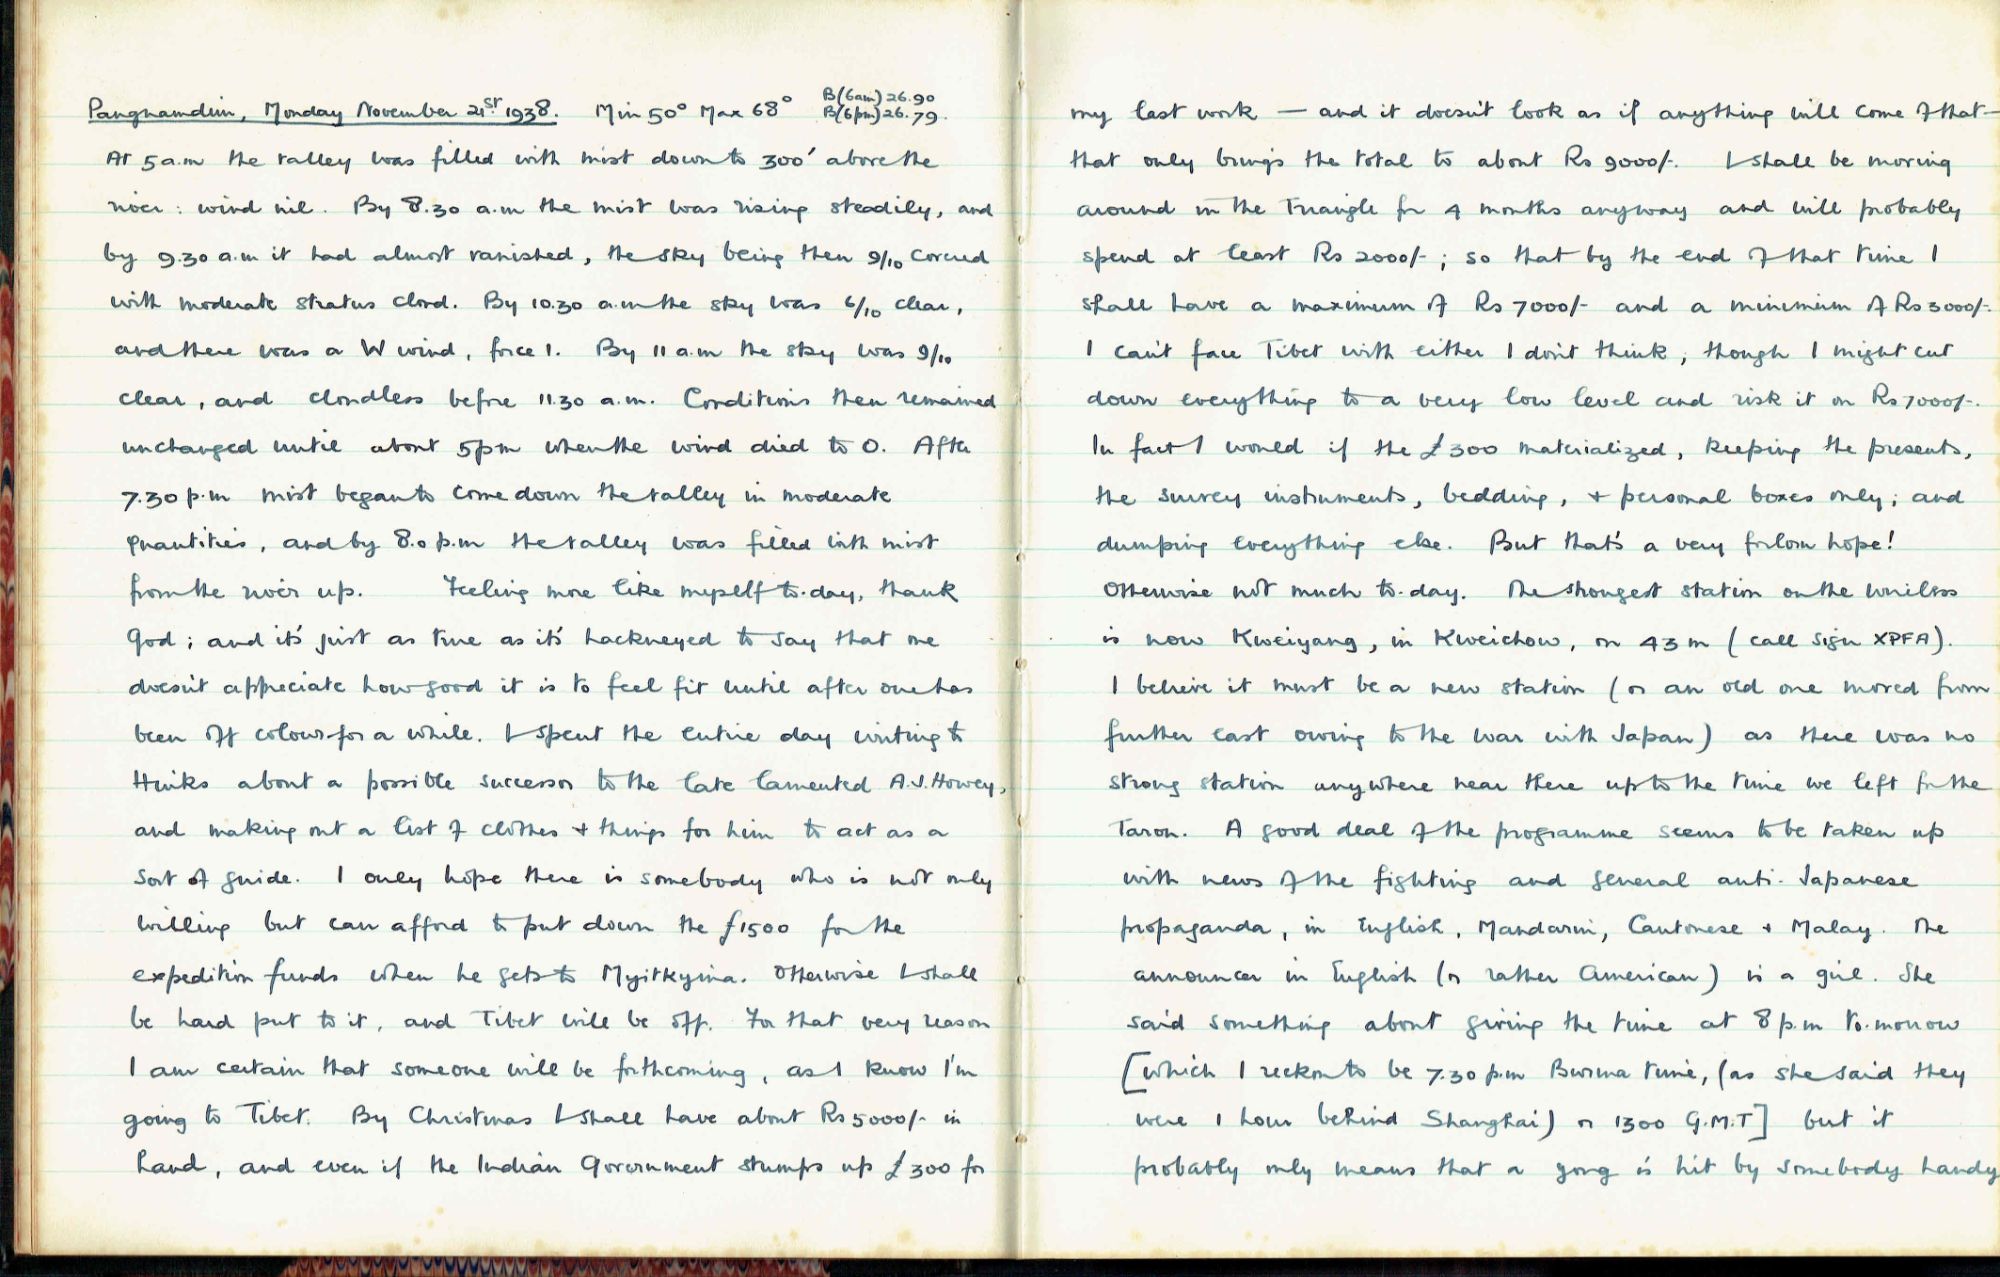 Pangnamdim, Monday November 21st 1938. Min 50° Max 68° B(6am) 26.90
B(6pm) 26.79.
At 5 a.m the valley was filled with mist down to 300' above the
river: wind nil. By 8.30 a.m the mist was rising steadily, and
by 9.30 a.m it had almost vanished, the sky being then 9/10 covered
with moderate stratus cloud. By 10.30 a.m the sky was 6/10 clear,
and there was a W wind, force 1. By 11 a.m the sky was 9/10
clear, and cloudless before 11.30 a.m. Conditions then remained
unchanged until about 5pm when the wind died to 0. After
7.30 p.m mist began to come down the valley in moderate
quantities, and by 8.0 p.m the valley was filled with mist
from the river up. Feeling more like myself to-day, thank
God; and it's just as true as it's hackneyed to say that one
doesn't appreciate how good it is to feel fit until after one has
been off colour for a while. I spent the entire day writing to
Hinks about a possible successor to the late lamented A.J. Howey,
and making out a list of clothes + things for him to act as a
sort of guide. I only hope there is somebody who is not only
willing but can afford to put down the £1500 for the
expedition funds when he gets to Myitkyina. Otherwise I shall
be hard put to it, and Tibet will be off. For that very reason
I am certain that someone will be forthcoming, as I know I'm
going to Tibet. By Christmas I shall have about Rs 5000/- in
hand, and even if the Indian Government stumps up £300 for
my last work — and it doesn't look as if anything will come of that —
that only brings the total to about Rs 9000/-. I shall be moving
around in the Triangle for 4 months anyway and will probably
spend at least Rs 2000/-; so that by the end of that time I
shall have a maximum of Rs 7000/- and a minimum of Rs 3000/-.
I can't face Tibet with either I don't think, though I might cut
down everything to a very low level and risk it on Rs 7000/-.
In fact I would if the £300 materialized, keeping the presents,
the survey instruments, bedding, + personal boxes only; and
dumping everything else. But that's a very forlorn hope!
Otherwise not much to-day. The strongest station on the wireless
is now Kweiyang, in Kweichow, on 43 m (call sign XPFA).
I believe it must be a new station (or an old one moved from
further east owing to the war with Japan) as there was no
strong station anywhere near there up to the time we left for the
Taron. A good deal of the programme seems to be taken up
with news of the fighting and general anti-Japanese
propaganda, in English, Mandarin, Cantonese + Malay. The
announcer in English (or rather American) is a girl. She
said something about giving the time at 8 p.m to-morrow
[which I reckon to be 7.30 p.m Burma time, (as she said they
were 1 hour behind Shanghai) or 1300 G.M.T] but it
probably only means that a gong is hit by somebody handy